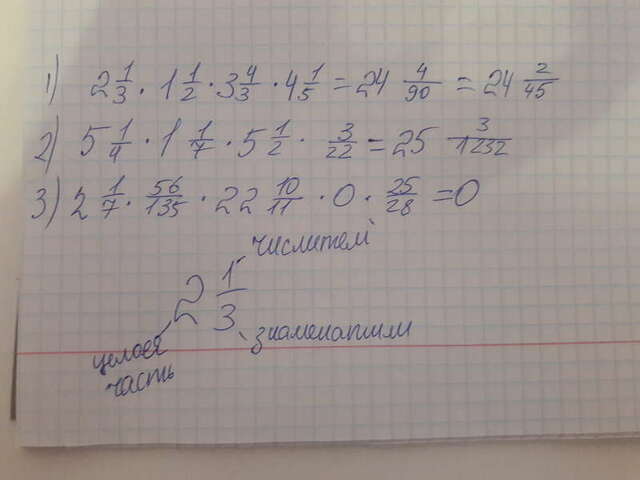 1) 2 1/3 · 1 1/2 · 3 4/3 · 4 1/5 = 24 4/90 = 24 2/45
2) 5 1/4 · 1 1/7 · 5 1/2 · 3/22 = 25 3/1232
3) 2 1/7 · 56/135 · 22 10/11 · 0 · 25/28 = 0
числители
2 1/3
знаменатили
целоея
часть